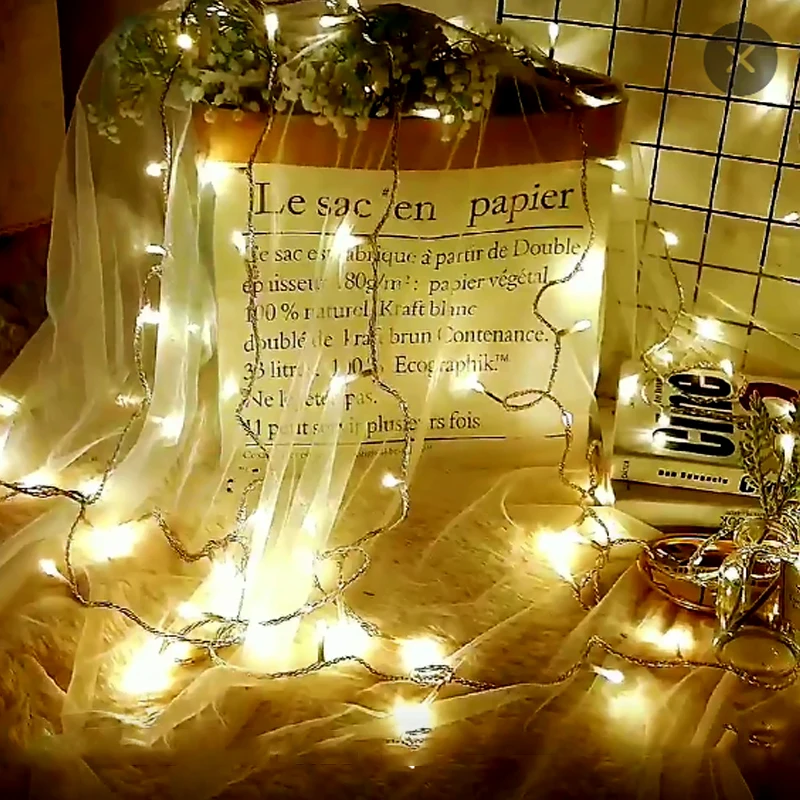 Le sac en papier
Le sac est fabrique à partir de Double
épaisseur 80g/m²: papier végétal
100 % naturel Kraft blanc
doublé de kraft brun Contenance.
litres 100% Ecographik.™
Ne le jetez pas.
Il peut servir plusieurs fois
Crime